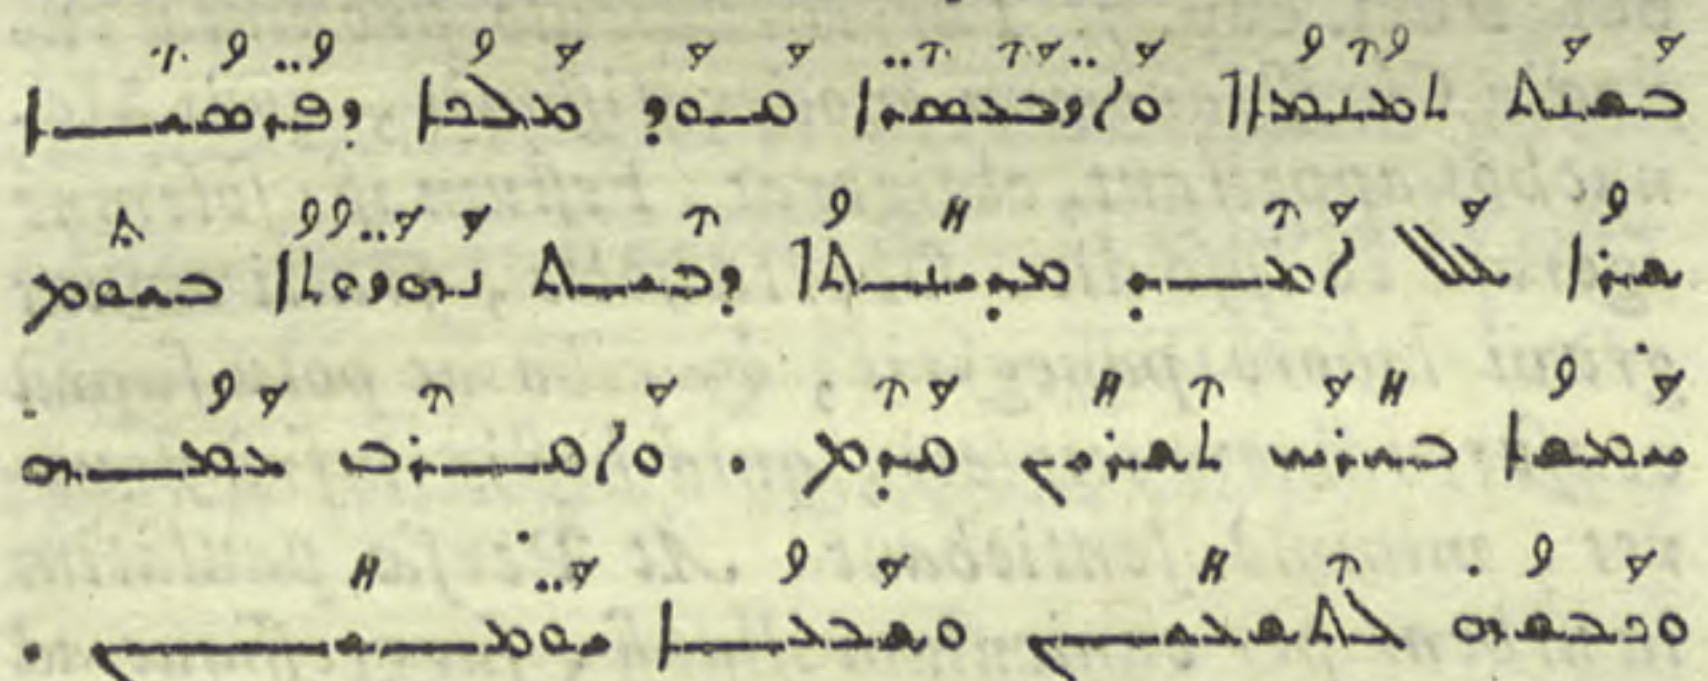 ܒܫܢܬ ܬܡܢܡܐܐ ܘܐܪܒܥܣܪ̈ܐ ܩܘܕ ܡܠܟܐ ܕܦܪ̈ܣܝܐ
ܫܪܐ ܥܠ ܐܡܝܕ ܡܕܝܢܬܐ ܕܒܝܬ ܢܗܪ̈ܘܬܐ ܒܝܘܡ
ܚܡܫܐ ܒܝܪܚ ܬܫܪܝܢ ܩܕܡ . ܘܐܩܪܒ ܥܡܗ̇
ܘܟܒܫܗ̇ ܠܬܫܥܝܢ ܘܫܒܥܐ ܝܘܡ̈ܝܢ .